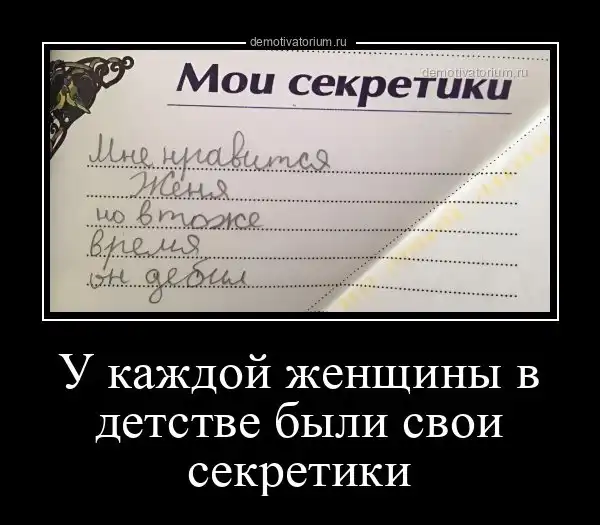 demotivatorium.ru
demotivatorium.ru
Мои секретики
Мне нравится
Женя
но в тоже
время
он дебил
У каждой женщины в
детстве были свои
секретики